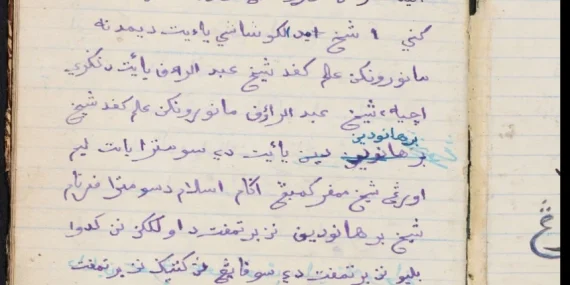 كني ١ شيخ احمد الكوشاشي يائيت ديمدنه
مانورونكن علم كفد شيخ عبد الرؤف يائيت دڠكري
اچيه، شيخ عبد الرائف مانورونكن علم كفد شيخ
برهانودين
برهانودين يائيت دي سومترا بات ليم
اورڠ شيخ ممفركمبڠ اݢام اسلام دسومترا فرتام
شيخ برهانودين نن برتمفت د اولاكن نن كدوا
بليو نن برتمفت دي سوڠاي نن كتيݢ نن برتمفت